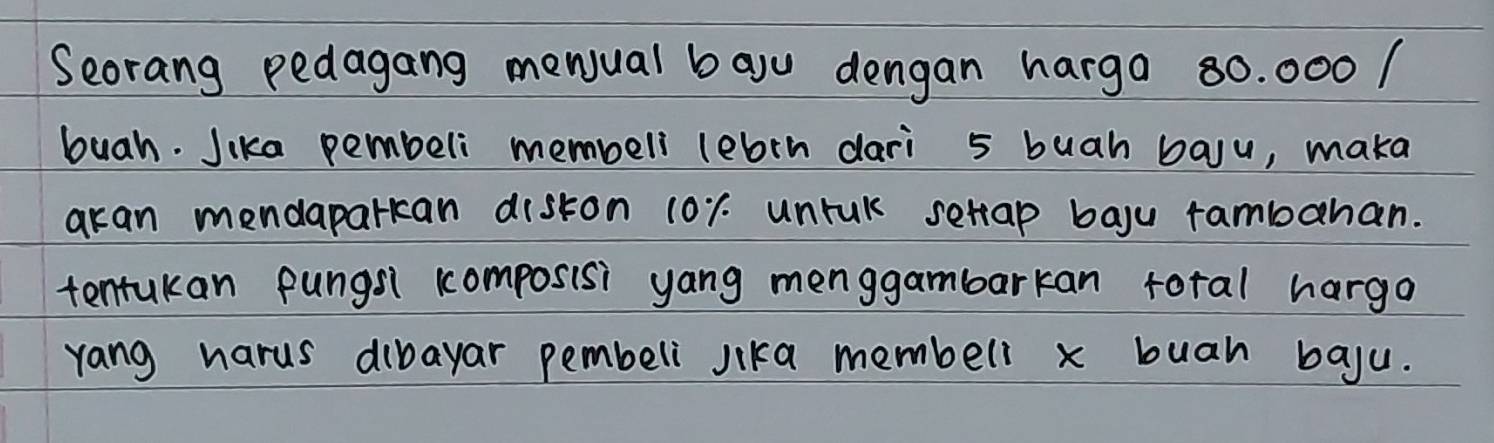 Seorang pedagang menjual baju dengan harga 80.000 /
buah. Jika pembeli membeli lebih dari 5 buah baju, maka
akan mendapatkan diskon 10% untuk setiap baju tambahan.
tentukan fungsi komposisi yang menggambarkan total harga
yang harus dibayar pembeli jika membeli x buah baju.